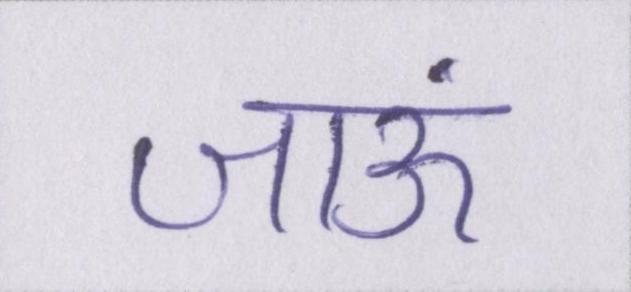 जाऊं